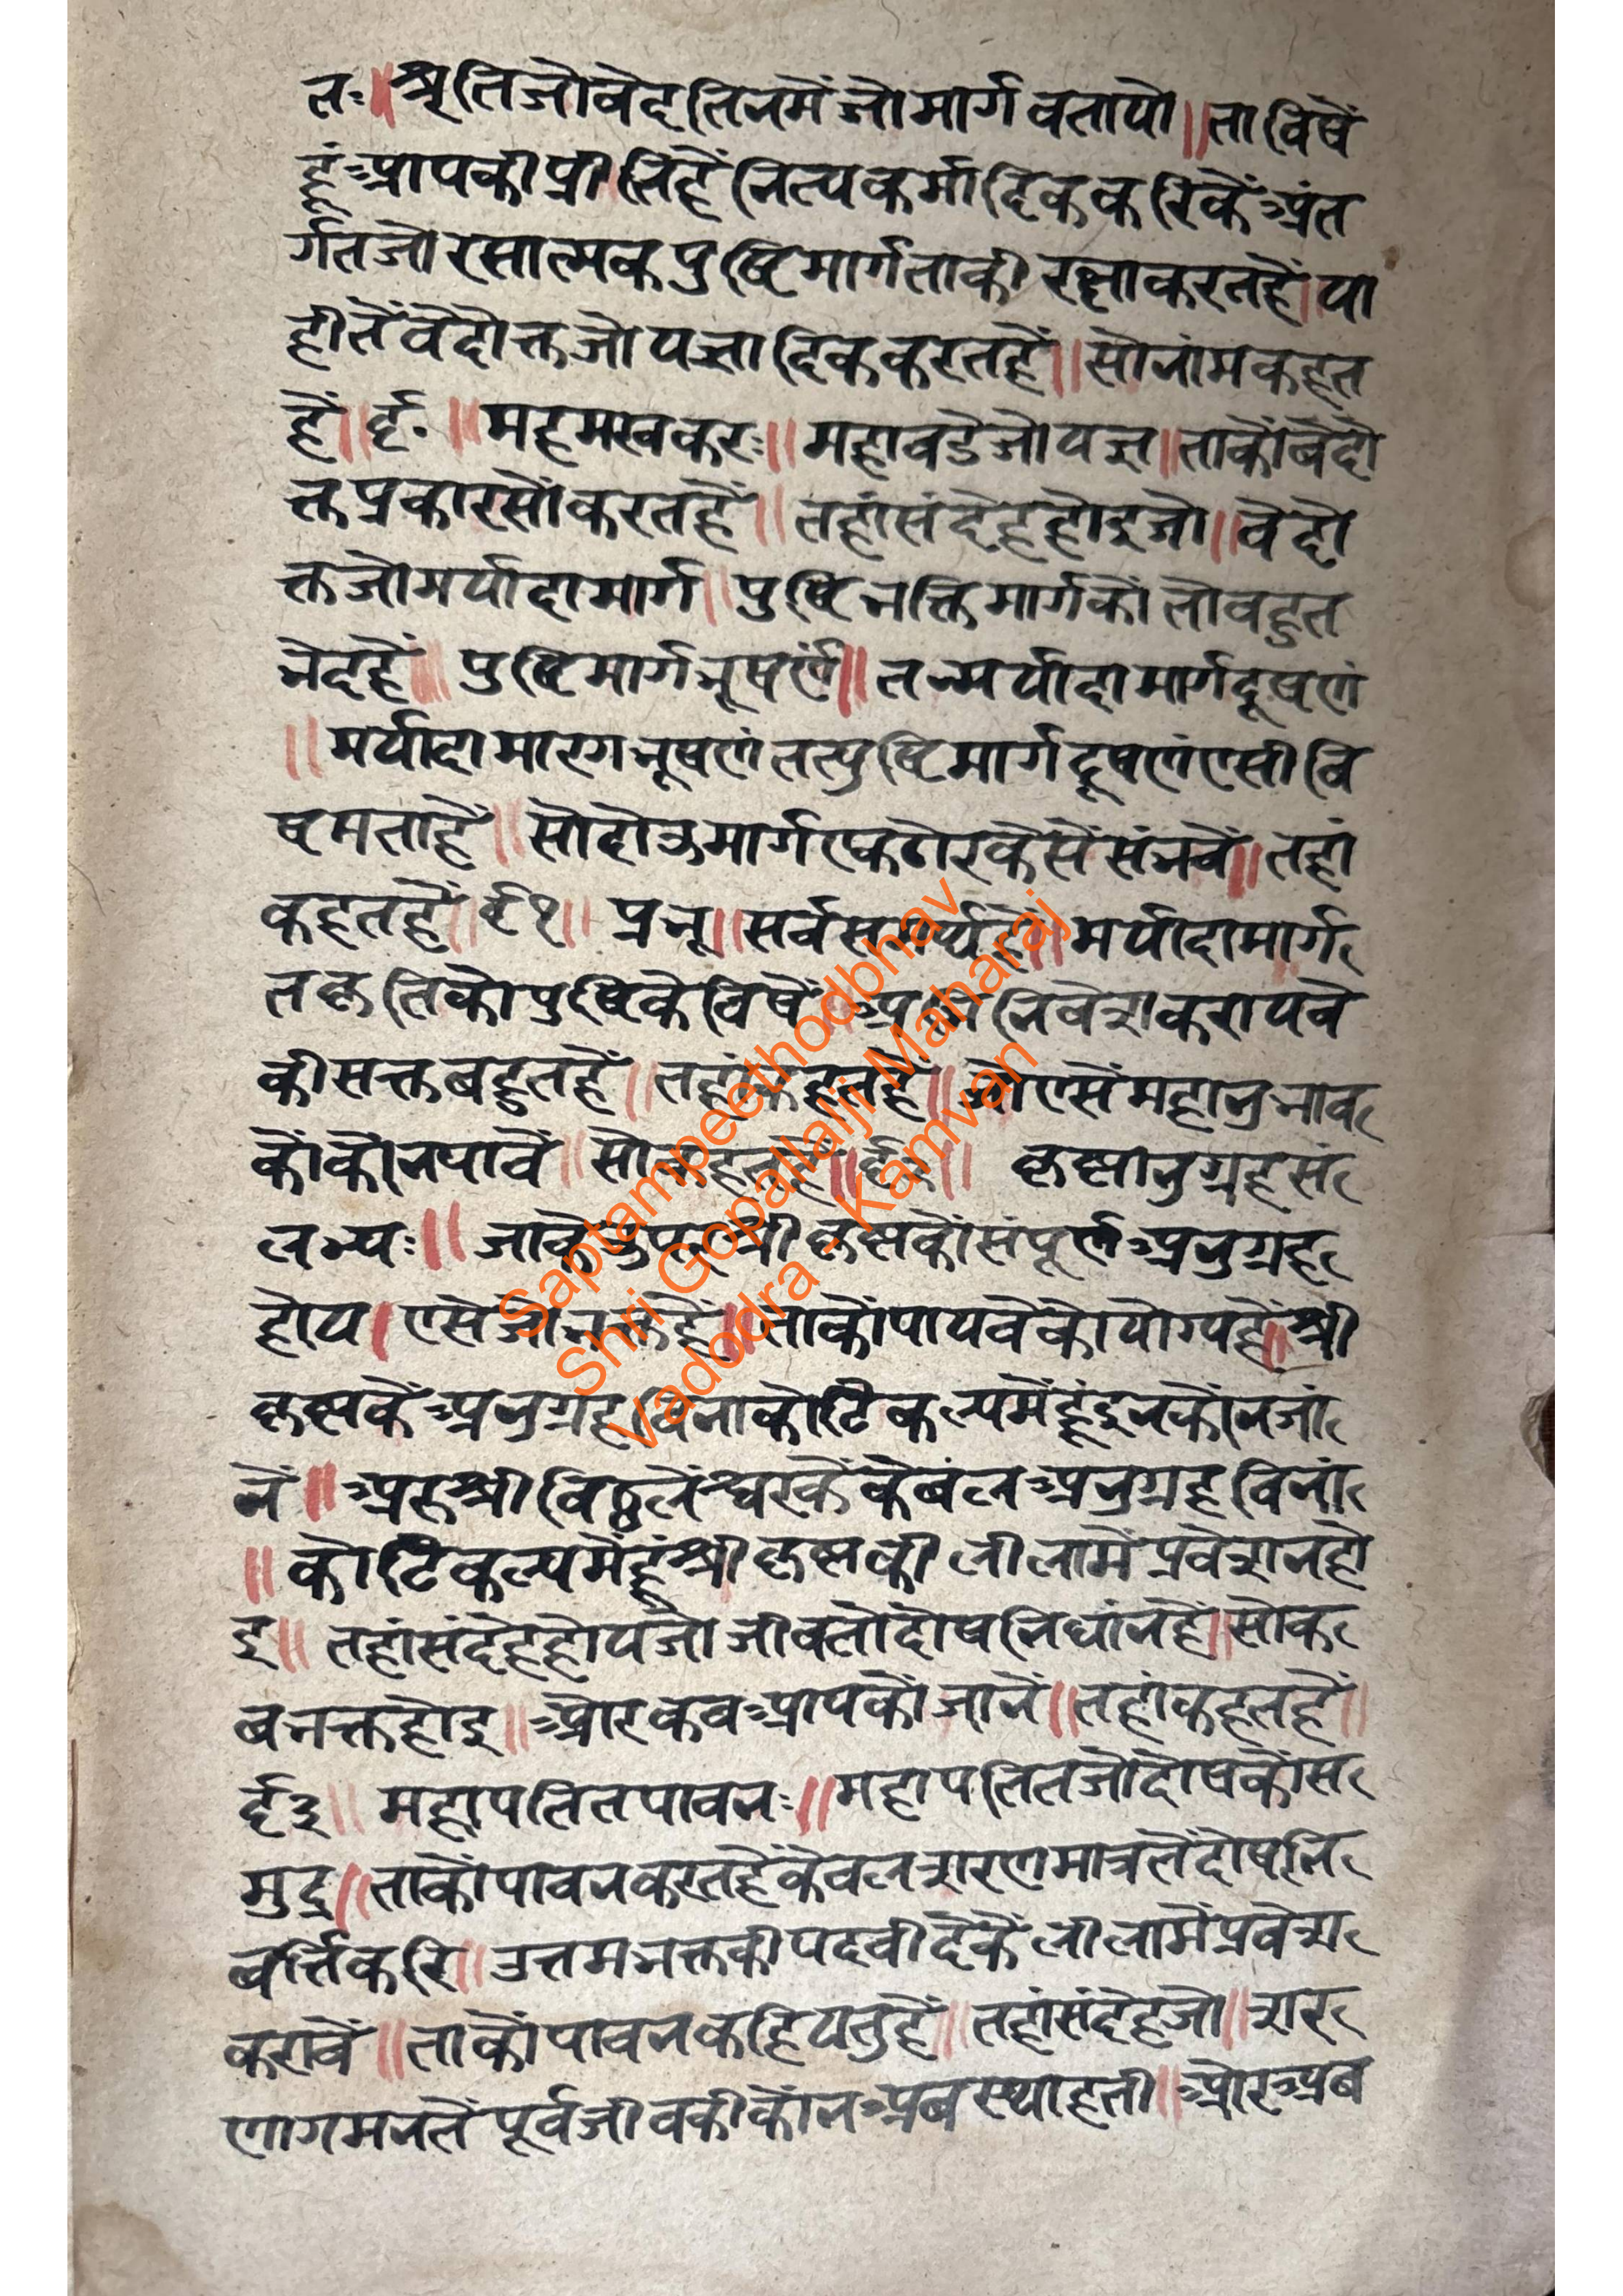 तः ॥ श्रुतिजोवेदतिनमेंजोमार्गबतायो ॥ ताविषें
हूंआपकीप्रीतिहेंनित्यकर्मादिककरिकेंअंत
र्गतजोरसात्मकपुष्टिमार्गताकीरक्षाकरतहें । या
हीतेंवेदोक्तजोयज्ञादिककरतहें ॥ सोनांमकहत
हें ॥ ६० ॥ महमखकरः ॥ महाबडेजोयज्ञ ॥ ताकोंबेदो
क्तप्रकारसोंकरतहें ॥ तहांसंदेहहोइजो ॥ वेदो
क्तजोमर्यादामार्ग ॥ पुष्टिभक्तिमार्गकोंतोबहुत
भेदहें ॥ पुष्टिमार्गभूषणं ॥ तन्मर्यादामार्गदूषणं
॥ मर्यादामारगभूषणंतत्पुष्टिमार्गदूषणंएसीवि
षमताहें ॥ सोदोऊमार्गएकठोरकेंसेंसंभवें ॥ तहां
कहतहें ॥ ६१ ॥ प्रभू ॥ सर्वसमर्थहें ॥ मर्यादामार्ग
तक्तिकोपुष्टिकेविषें ॥ अभिनिवेशकरायवे
कीसक्तबहुतहें ॥ तहांकहतहें ॥ जोएसेंमहानुभाव
कोंकोंनपावें ॥ सोकहतहें ॥ ६२ ॥ कृष्णानुग्रहसं
लभ्यः ॥ जाकेउपरश्रीकृष्णकोंसंपूर्णअनुग्रह
होय । एसेजोभक्तहें ॥ ताकोंपायवेकोयोग्यहें ॥ श्री
कृष्णकेंअनुग्रहबिनाकोटिकल्पमेंहूंइनकोंनजां
नें ॥ अरुश्रीविठ्ठलेंश्वरकेंकेबंलअनुग्रहविनां
॥ कोटिकल्पमेंहूंश्रीकृष्णकीलीलामेंप्रवेशनहो
इ ॥ तहांसंदेहहोयजोजीवतोदोषनिधांनहें ॥ सोक
बभक्तहोइ ॥ ओरकबआपकोंजानें ॥ तहांकहतहें ॥
६३ ॥ महापतितपावनः ॥ महापतितजोदोषकोंस
मुद्र ॥ ताकोंपावनकरतहेंकेवलशरणमात्रतेंदोषनि
बर्त्तिकरि ॥ उत्तमभक्तकीपदवीदेकेंलीलामेंप्रवेश
करावें ॥ ताकोंपावनकहियतुहें ॥ तहांसंदेहजो ॥ शर
णागमनतेंपूर्वजीवकीकोंनअबस्थाहती ॥ ओरअब
Saptampeethodbhav
Shri Gopallalji Maharaj
Vadodra Kamvan